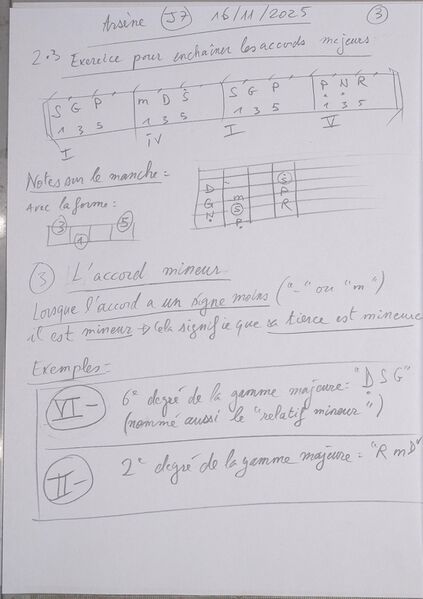 Arsène J7 16/11/2025 3
2.3 Exercice pour enchaîner les accords majeurs
S G P m D S S G P P N R
1 3 5 1 3 5 1 3 5 1 3 5
I IV I V
Notes sur le manche:
Avec la forme:
3 5
1
D S
G m P
N S R
P
3 L'accord mineur
Lorsque l'accord a un signe moins ("-" ou "m")
il est mineur → Cela signifie que sa tierce est mineure
Exemples:
VI- 6e degré de la gamme majeure: "D S G"
(nommé aussi le "relatif mineur")
II- 2e degré de la gamme majeure = "R m D"